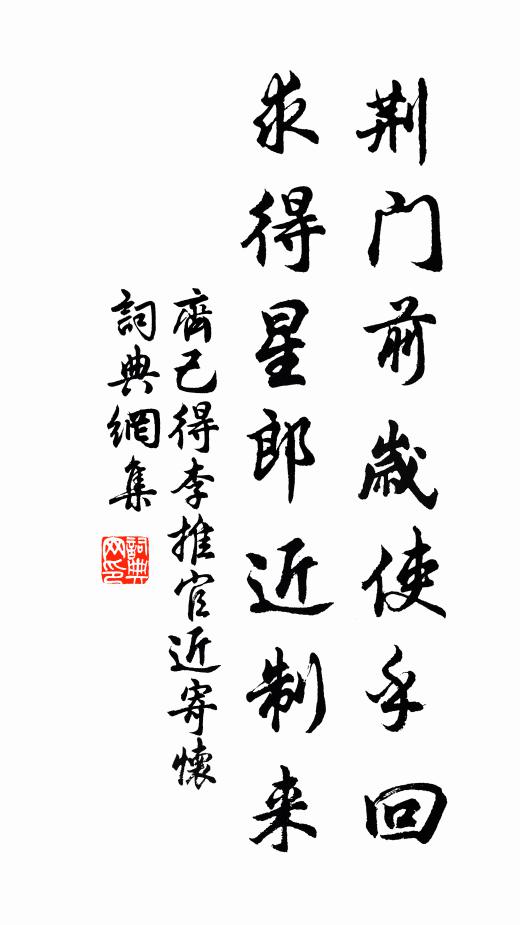 荆门前歲使乎回
求得星郎近制来
齊己得李推官近寄懷
詞典網集
詞典
网印